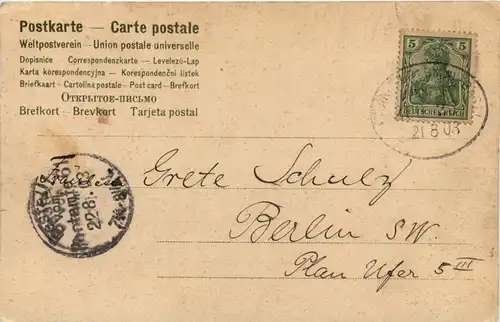 Postkarte — Carte postale
Weltpostverein – Union postale universelle
Dopisnice Correspondenzkarte – Levelező-Lap
Karta korespondencyjna – Korespondenční lístek
Briefkaart – Cartolina postale – Post card – Brefkort
Открытое-письмо
Brefkort – Brevkort Tarjeta postal
5 5
DEUTSCHES REICH
21 8 03
Grete Schulz
Berlin SW.
Plan Ufer 5 III
22 8.